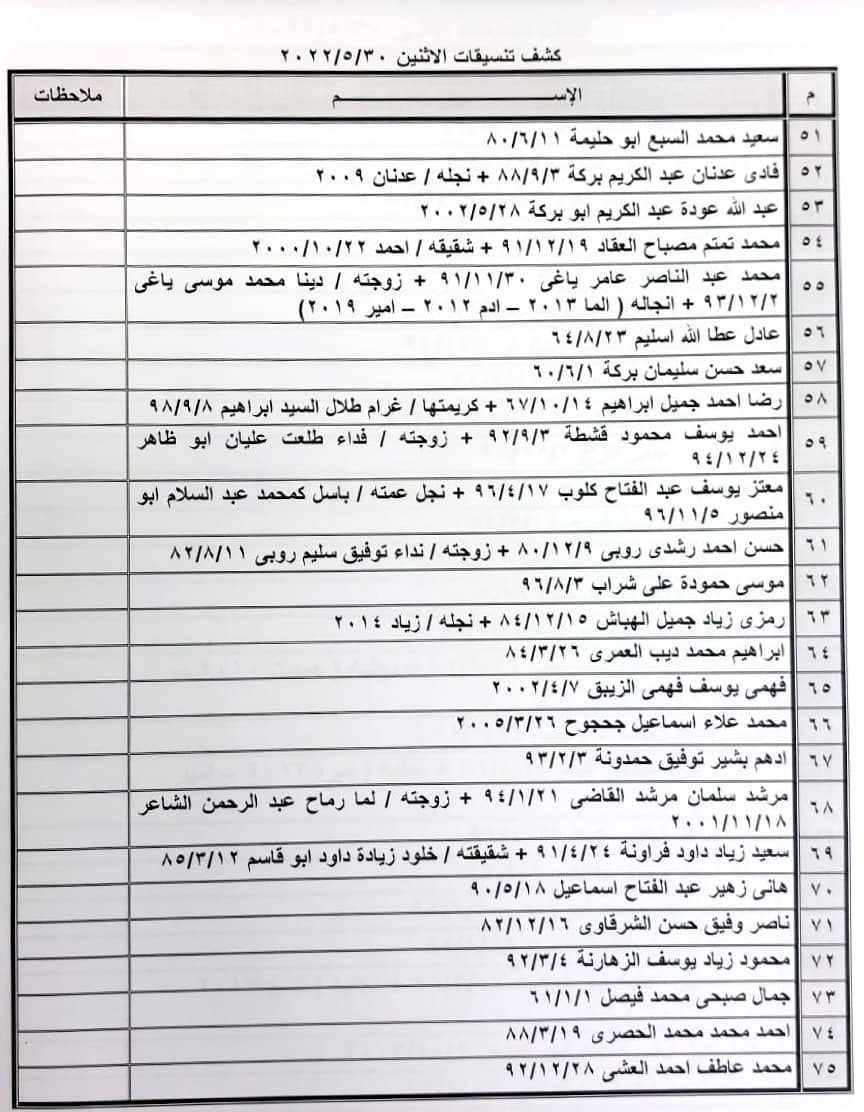 كشف تنسيقات الاثنين ٢٠٢٢/٥/٣٠
م الإســـــــــــــم ملاحظات
٥١ سعيد محمد السبع ابو حليمة ٨٠/٦/١١
٥٢ فادى عدنان عبد الكريم بركة ٨٨/٩/٣ + نجله / عدنان ٢٠٠٩
٥٣ عبد الله عودة عبد الكريم ابو بركة ٢٠٠٢/٥/٢٨
٥٤ محمد تمتم مصباح العقاد ٩١/١٢/١٩ + شقيقه / احمد ٢٠٠٠/١٠/٢٢
٥٥ محمد عبد الناصر عامر ياغى ٩١/١١/٣٠ + زوجته / دينا محمد موسى ياغى
٩٣/١٢/٢ + انجاله ( الما ٢٠١٣ – ادم ٢٠١٢ – امير ٢٠١٩)
٥٦ عادل عطا الله اسليم ٦٤/٨/٢٣
٥٧ سعد حسن سليمان بركة ٦٠/٦/١
٥٨ رضا احمد جميل ابراهيم ٦٧/١٠/١٤ + كريمتها / غرام طلال السيد ابراهيم ٩٨/٩/٨
٥٩ احمد يوسف محمود قشطة ٩٢/٩/٣ + زوجته / فداء طلعت عليان ابو ظاهر
٩٤/١٢/٢٤
٦٠ معتز يوسف عبد الفتاح كلوب ٩٦/٤/١٧ + نجل عمته / باسل كمحمد عبد السلام ابو
منصور ٩٦/١١/٥
٦١ حسن احمد رشدى روبى ٨٠/١٢/٩ + زوجته / نداء توفيق سليم روبى ٨٢/٨/١١
٦٢ موسى حمودة على شراب ٩٦/٨/٣
٦٣ رمزى زياد جميل الهباش ٨٤/١٢/١٥ + نجله / زياد ٢٠١٤
٦٤ ابراهيم محمد ديب العمرى ٨٤/٣/٢٦
٦٥ فهمى يوسف فهمى الزيبق ٢٠٠٢/٤/٧
٦٦ محمد علاء اسماعيل جحجوح ٢٠٠٥/٣/٢٦
٦٧ ادهم بشير توفيق حمدونة ٩٣/٢/٣
٦٨ مرشد سلمان مرشد القاضى ٩٤/١/٢١ + زوجته / لما رماح عبد الرحمن الشاعر
٢٠٠١/١١/١٨
٦٩ سعيد زياد داود فراونة ٩١/٤/٢٤ + شقيقته / خلود زيادة داود ابو قاسم ٨٥/٣/١٢
٧٠ هانى زهير عبد الفتاح اسماعيل ٩٠/٥/١٨
٧١ ناصر وفيق حسن الشرقاوى ٨٢/١٢/١٦
٧٢ محمود زياد يوسف الزهارنة ٩٢/٣/٤
٧٣ جمال صبحى محمد فيصل ٦١/١/١
٧٤ احمد محمد محمد الحصرى ٨٨/٣/١٩
٧٥ محمد عاطف احمد العشى ٩٢/١٢/٢٨